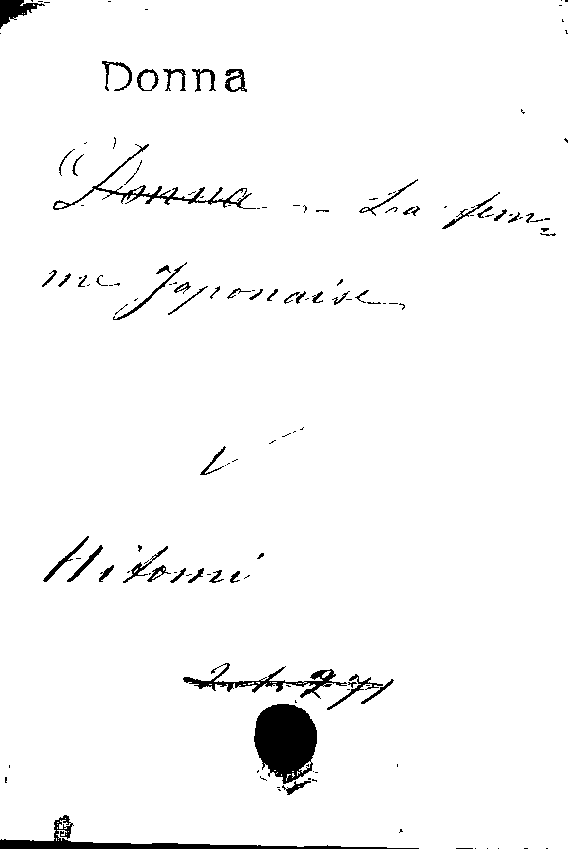 Donna
Donna - La fem=
me Japonaise
V
Hitomi